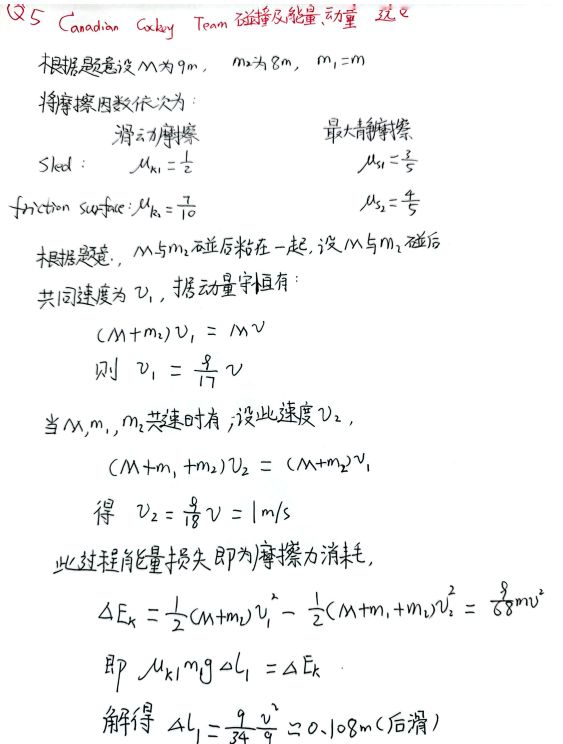 Q5 Canadian Cockey Team 碰撞及能量、动量
根据题意设M为9m, m₂为8m, m₁=m
将摩擦因数依次为:
滑动摩擦 最大静摩擦
Sled: μk₁=1/2 μs₁=3/5
friction surface: μk₂=7/10 μs₂=4/5
根据题意,M与m₂碰后粘在一起,设M与m₂碰后
共同速度为v₁,据动量守恒有:
(M+m₂)v₁ = Mv
则 v₁ = 9/17 v
当M,m₁,m₂共速时有,设此速度v₂,
(M+m₁+m₂)v₂ = (M+m₂)v₁
得 v₂ = 9/18 v = 1m/s
此过程能量损失即为摩擦力消耗,
ΔEₖ = 1/2(M+m₂)v₁² - 1/2(M+m₁+m₂)v₂² = 9/68 mv²
即 μk₁m₁gΔL₁ = ΔEₖ.
解得 ΔL₁ = 9/34 v²/g ≈ 0.108m(后滑)